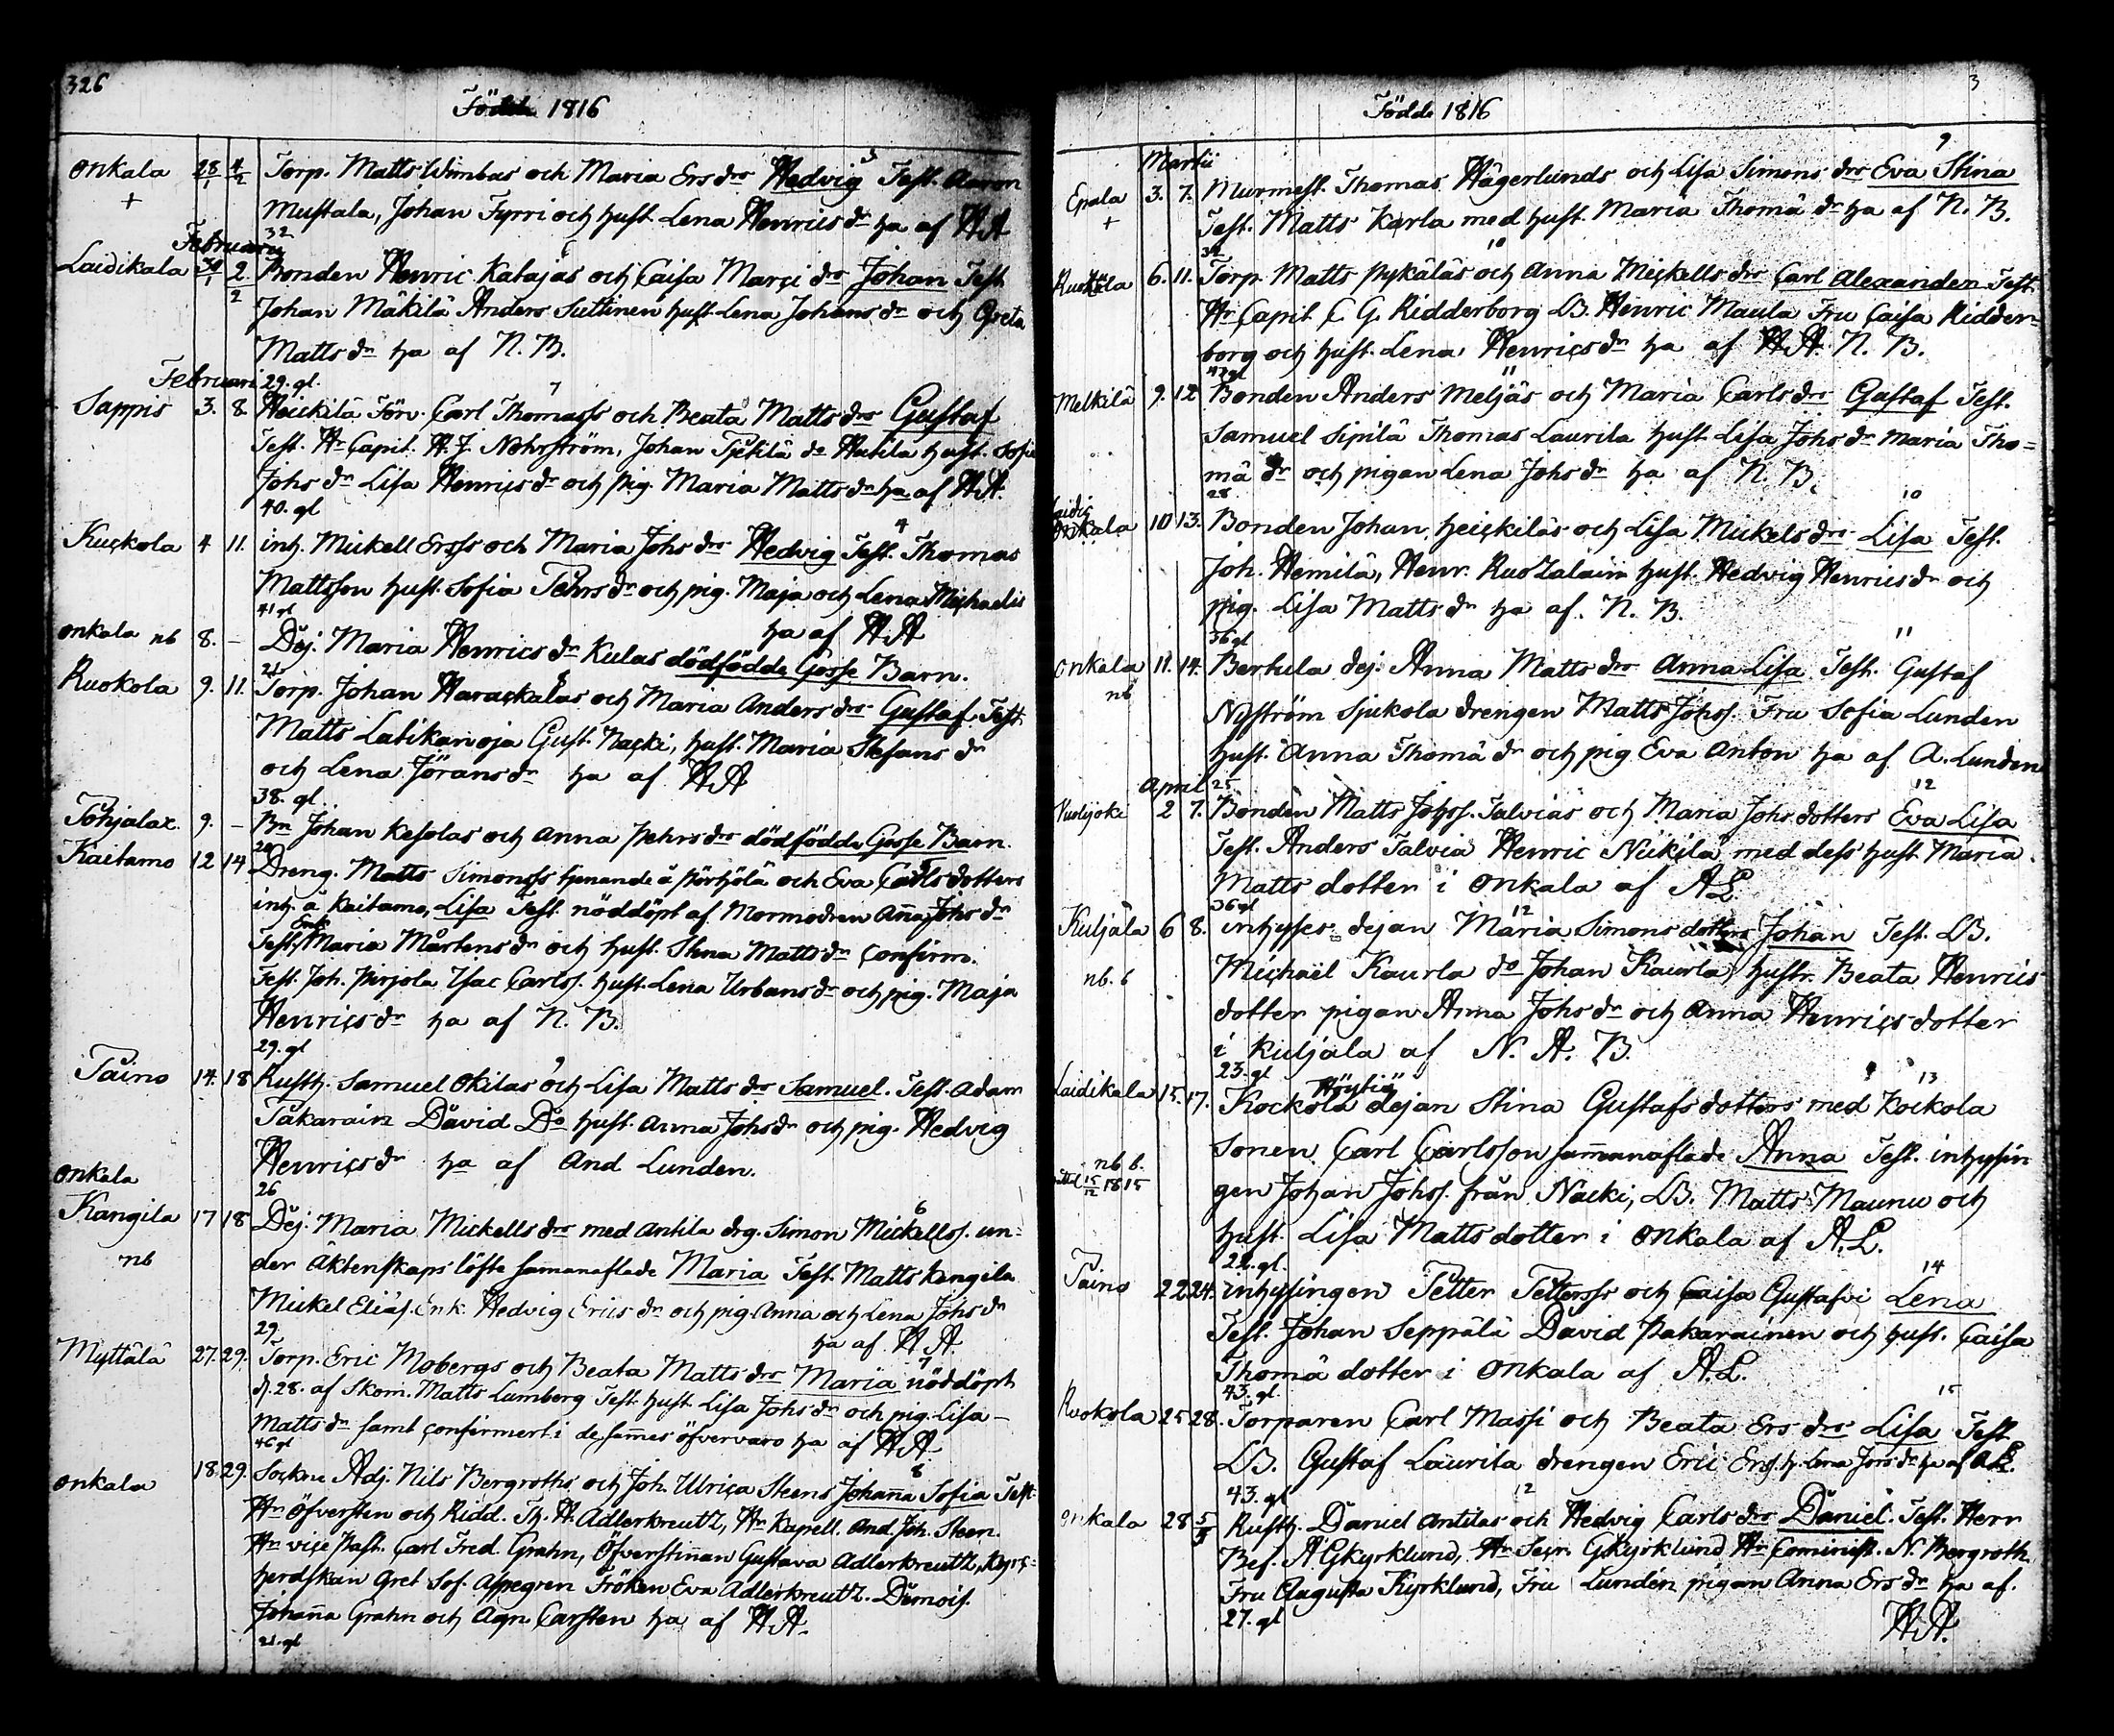 326
Födde 1816
Onkala 28/1 4/2 Torp. Matts Wimbas och Maria Ersdrs Hedvig 5 Test. Aaron
+ Mustala, Johan Fyrri och Hust. Lena Henricsdr ha af HA
Februarii 32
Laidikala 30/1 2/2 Bonden Henric Katajas och Caisa Marci drs Johan 6 Test.
Johan Mäkilä Anders Suttinen Hust. Lena Johansdr och Greta
Mattsdr ha af N. B.
Februari 29. gl.
Sappis 3. 8. Heickilä Förv. Carl Thomass och Beata Mattsdrs Gustaf 7
Test. Hr Capit. H. J. Nohrström, Johan do Hutila Hust. Sofia
Johsdr Lisa Henricsdr och pig. Maria Mattsdr ha af HA.
40. gl
Kuckola 4 11. inh. Mickell Erss och Maria Johsdrs Hedvig 4 Test. Thomas
Mattsson Hust. Sofia Pehrsdr och pig. Maja och Lena Michaelis
41 gl ha af HA
Onkala nb 8. – Dej. Maria Henricsdr Kulas dödfödde Gosse Barn.
21
Ruokola 9. 11. Torp. Johan Harackalas och Maria Andersdrs Gustaf 8 Test.
Matts Latikanoja Gust. Nacki, Hust. Maria Stefansdr
och Lena Jöransdr ha af HA
38. gl.
Pohjalax. 9. – Bn Johan Kesolas och Anna Pehrsdrs dödfödde Gosse Barn.
20
Kaitamo 12 14 Dreng. Matts Simonss tjenande å Pörhölä och Eva Carlsdotters
inh. å Kaitamo, Lisa 5 Test. nöddöpt af Mormodren Anna Johsdr
Test. Enk. Maria Mårtensdr och Hust. Stina Mattsdr confirm.
Test. Joh. Pirjola Isac Carlss. Hust. Lena Urbansdr och pig. Maja
Henricsdr ha af N. B.
29. gl
Taino 14. 18 Rusth. Samuel Okilas och Lisa Mattsdrs Samuel. 9 Test. Adam
Pakarain David Do Hust. Anna Johsdr och pig. Hedvig
Henricsdr ha af And Lunden.
Onkala 26
Kangila 17 18 Dej. Maria Mickellsdrs med Antila drg. Simon Mickellss. un= 6
nb der Äktenskaps löfte samanaflade Maria Test. Matts Kangila
Mickel Eliäs. Enk. Hedvig Ericsdr och pig. Anna och Lena Johsdr
29 ha af HA
Myttälä 27. 29. Torp. Eric Mobergs och Beata Mattsdrs Maria 7 nöddöpt
d. 28. af Skom. Matts Lumberg Test. Hust. Lisa Johsdr och pig. Lisa –
Mattsdr samt confirmert i de sammes öfvervaro ha af HA
46 gl
Onkala 18. 29. Sockne Adj. Nils Bergroths och Joh. Ulrica Steens Johanna Sofia 8 Test.
Hr Öfversten och Ridd. Th. H. Adlerkreutz, Hr Kapell. And. Joh. Steen.
Hr vice Past. Carl Fred. Grahn, Öfverstinnan Gustava Adlerkreutz, Kyrc=
herdskan Gret Sof. Aspegren Fröken Eva Adlerkreutz. Demois.
Johanna Grahn och Agn. Carsten ha af HA.
21. gl
3
Födde 1816
Martii
Epala 3. 7. Murmest. Thomas Hägerlunds och Lisa Simonsdrs Eva Stina 9
+ Test. Matts Karla med Hust. Maria Thomä dr ha af N. B.
32
Ruokola 6. 11. Torp. Matts Pykäläs och Anna Mickellsdrs Carl Alexander 10 Test.
Hr Capit. C. G. Ridderborg LB. Henric Maula Fru Caisa Ridder=
borg och Hust. Lena Henricsdr ha af HA. N. B.
42 gl
Melkilä 9. 12 Bonden Anders Meljäs och Maria Carlsdrs Gustaf 11 Test.
Samuel Sipilä Thomas Laurila Hust Lisa Johsdr Maria Tho=
mä dr och pigan Lena Johsdr ha af N. B.
28
Laidic
kala 10 13. Bonden Johan Heickiläs och Lisa Mickelsdrs Lisa 10 Test.
Joh. Hemilä, Henr. Ruozalain Hust. Hedvig Henricsdr och
pig. Lisa Mattsdr ha af. N. B.
36 gl
Onkala 11. 14. Bertula dej. Anna Mattsdrs Anna Lisa 11 Test. Gustaf
nb Nyström Sjukola drengen Matts Johss. Fru Sofia Lunden
Hust. Anna Thomä dr och pig Eva Anton ha af A. Lunden
April 25
2 7. Bonden Matts Johss. Talvias och Maria Johsdotters Eva Lisa 12
Test. Anders Talvia Henric Nickilä med dess Hust Maria
Mattsdotter i Onkala af AL.
36 gl
Kuljala 6 8. inhyses dejan Maria Simonsdotters Johan 12 Test. LB.
nb. 6 Michaël Kaurla do Johan Kaurla, Hustr. Beata Henrics
dotter pigan Anna Johsdr och Anna Henricsdotter
i Kuljala af N. A. B.
23. gl
Laidikala 15. 17. Kockola Höytiö dejan Stina Gustafsdotters med Kockola 13
Sonen Carl Carlsson samanaflade Anna Test. inhysin
nb 6. 15/12 1815 gen Johan Johss. från Näcki, LB. Matts Maunu och
Hust. Lisa Mattsdotter i Onkala af A. L.
22. gl.
Taino 22 24. inhysingen Petter Petterss och Caisa Gustavi Lena 14
Test. Johan Seppälä David Pakarainen och Hust. Caisa
Thomä dotter i Onkala af A. L.
43. gl.
Ruokola 25 28. Torparen Carl Massi och Beata Ersdrs Lisa 15 Test.
LB. Gustaf Laurila drengen Eric Ers. h. Lena Jorsdr ha af AL.
43. gl
Onkala 28 5/5 Rusth. Daniel Antilas och Hedvig Carlsdrs Daniel. 12 Test. Herr
Bef. A G Kyrklund, Hr Secr. G Kyrklund Hr Cominist. N. Bergroth
Fru Augusta Kyrklund, Fru Lundén pigan Anna Ersdr ha af.
27. gl HA.